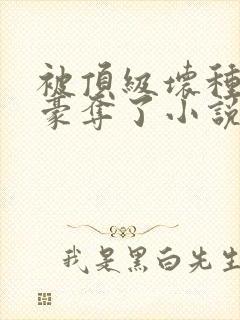 被頂級壞種
豪奪了小說
我是黑白先生